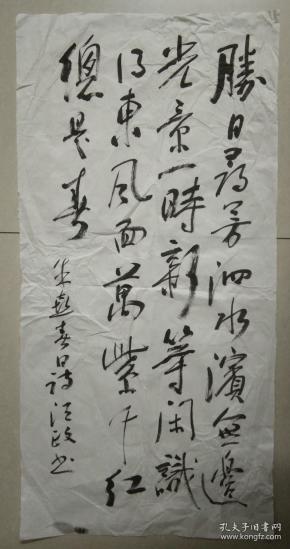 勝日尋芳泗水濱無邊
光景一時新等閑識
得東風面萬紫千紅
總是春
朱熹春日詩 江政书
孔夫子旧书网
kongfz.com